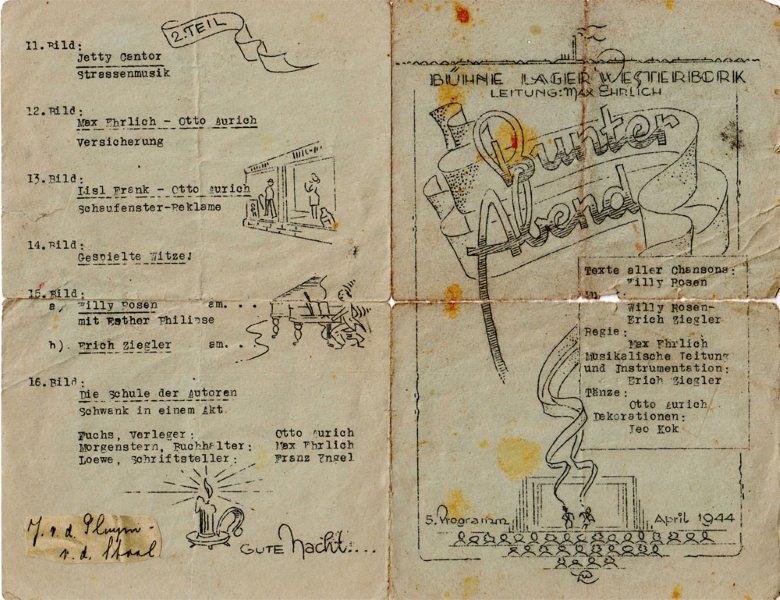 2. TEIL
11. Bild:
Jetty Cantor
Strassenmusik
12. Bild:
Max Ehrlich - Otto Aurich
Versicherung
13. Bild:
Lisl Frank - Otto Aurich
Schaufenster-Reklame
14. Bild:
Gespielte Witze!
15. Bild:
a) Willy Rosen am. . .
mit Esther Philipse
b). Erich Ziegler am. . .
16. Bild:
Die Schule der Autoren
Schwank in einem Akt
Fuchs, Verleger: Otto Aurich
Morgenstern, Buchhalter: Max Ehrlich
Loewe, Schriftsteller: Franz Engel
J. v. d.
v. d.
GUTE Nacht....
BÜHNE LAGER WESTERBORK
LEITUNG: MAX EHRLICH
Bunter
Abend
Texte aller Chansons:
Willy Rosen
Willy Rosen-
Erich Ziegler
Regie:
Max Ehrlich
Musikalische Leitung
und Instrumentation:
Erich Ziegler
Tänze:
Otto Aurich
Dekorationen:
Leo Kok
5. Programm April 1944